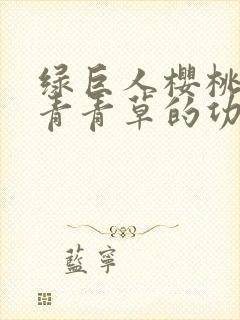 绿巨人樱桃
青青草的功
蓝宁